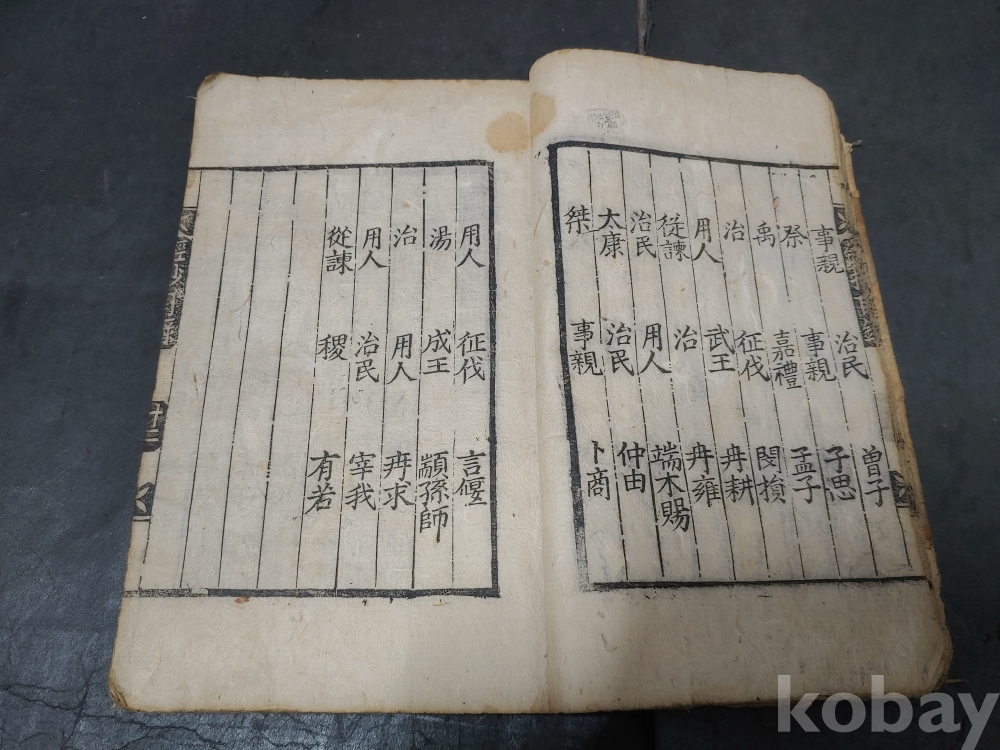 事親 治民 曾子
祭 事親 子思
禹 嘉禮 孟子
治 征伐 閔損
用人 武王 冉耕
從諫 治 冉雍
治民 用人 端木賜
太康 治民 仲由
桀 事親 卜商
用人 征伐 言偃
湯 成王 顓孫師
治 用人 冉求
用人 治民 宰我
從諫 稷 有若
kobay